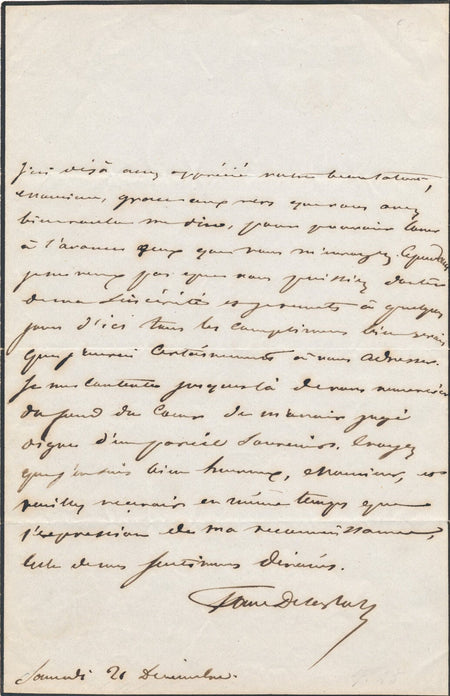 J'ai déjà assez apprécié votre beau talent,
Monsieur, grâce aux vers que vous avez
bien voulu me dire, pour pouvoir louer
à l'avance ceux que vous m'envoyez. Cependant
je ne veux pas que vous puissiez douter
de ma sincérité et je remets à quelques
jours d'ici tous les compliments bien
que j'aurai certainement à vous adresser.
Je me contente jusque là de vous remercier
du fond du cœur de m'avoir jugé
digne d'un pareil souvenir. Croyez
que j'en suis bien heureux, Monsieur, et
veuillez recevoir en même temps que
l'expression de ma reconnaissance,
celle de mes sentiments dévoués.
Samedi 21 Décembre.